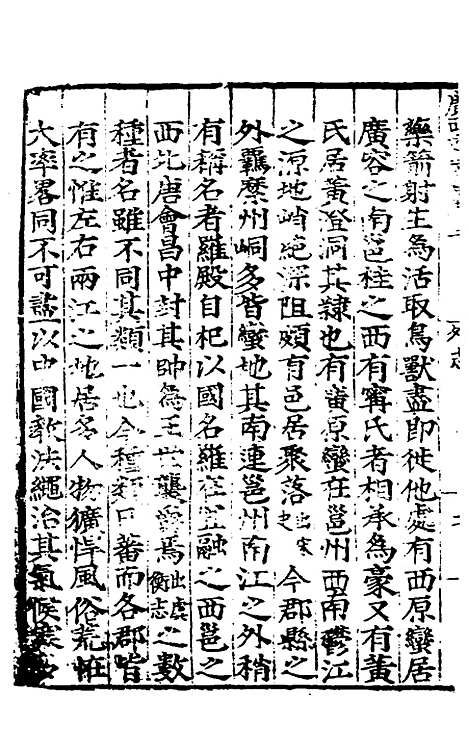 藥箭射生為活取鳥獸盡即徙他處有西原蠻居
廣容之南邕桂之西有甯氏者相承為豪又有黃
氏居黃澄洞其隸也有黃原蠻在邕州西南鬱江
之源地峭絕深阻頗有邑居聚落出宋史今郡縣之
外羈縻州峒多皆蠻地其南連邕州南江之外稍
有稱名者羅殿自杞以國名羅在宜融之西邕之
西北唐會昌中封其帥為王世襲爵焉出虞衡志之數
種者名雖不同其類一也今種類日蕃而各郡皆
有之惟左右兩江之地居多人物獷悍風俗荒怪
大率畧同不可盡以中國教法繩治其氣候